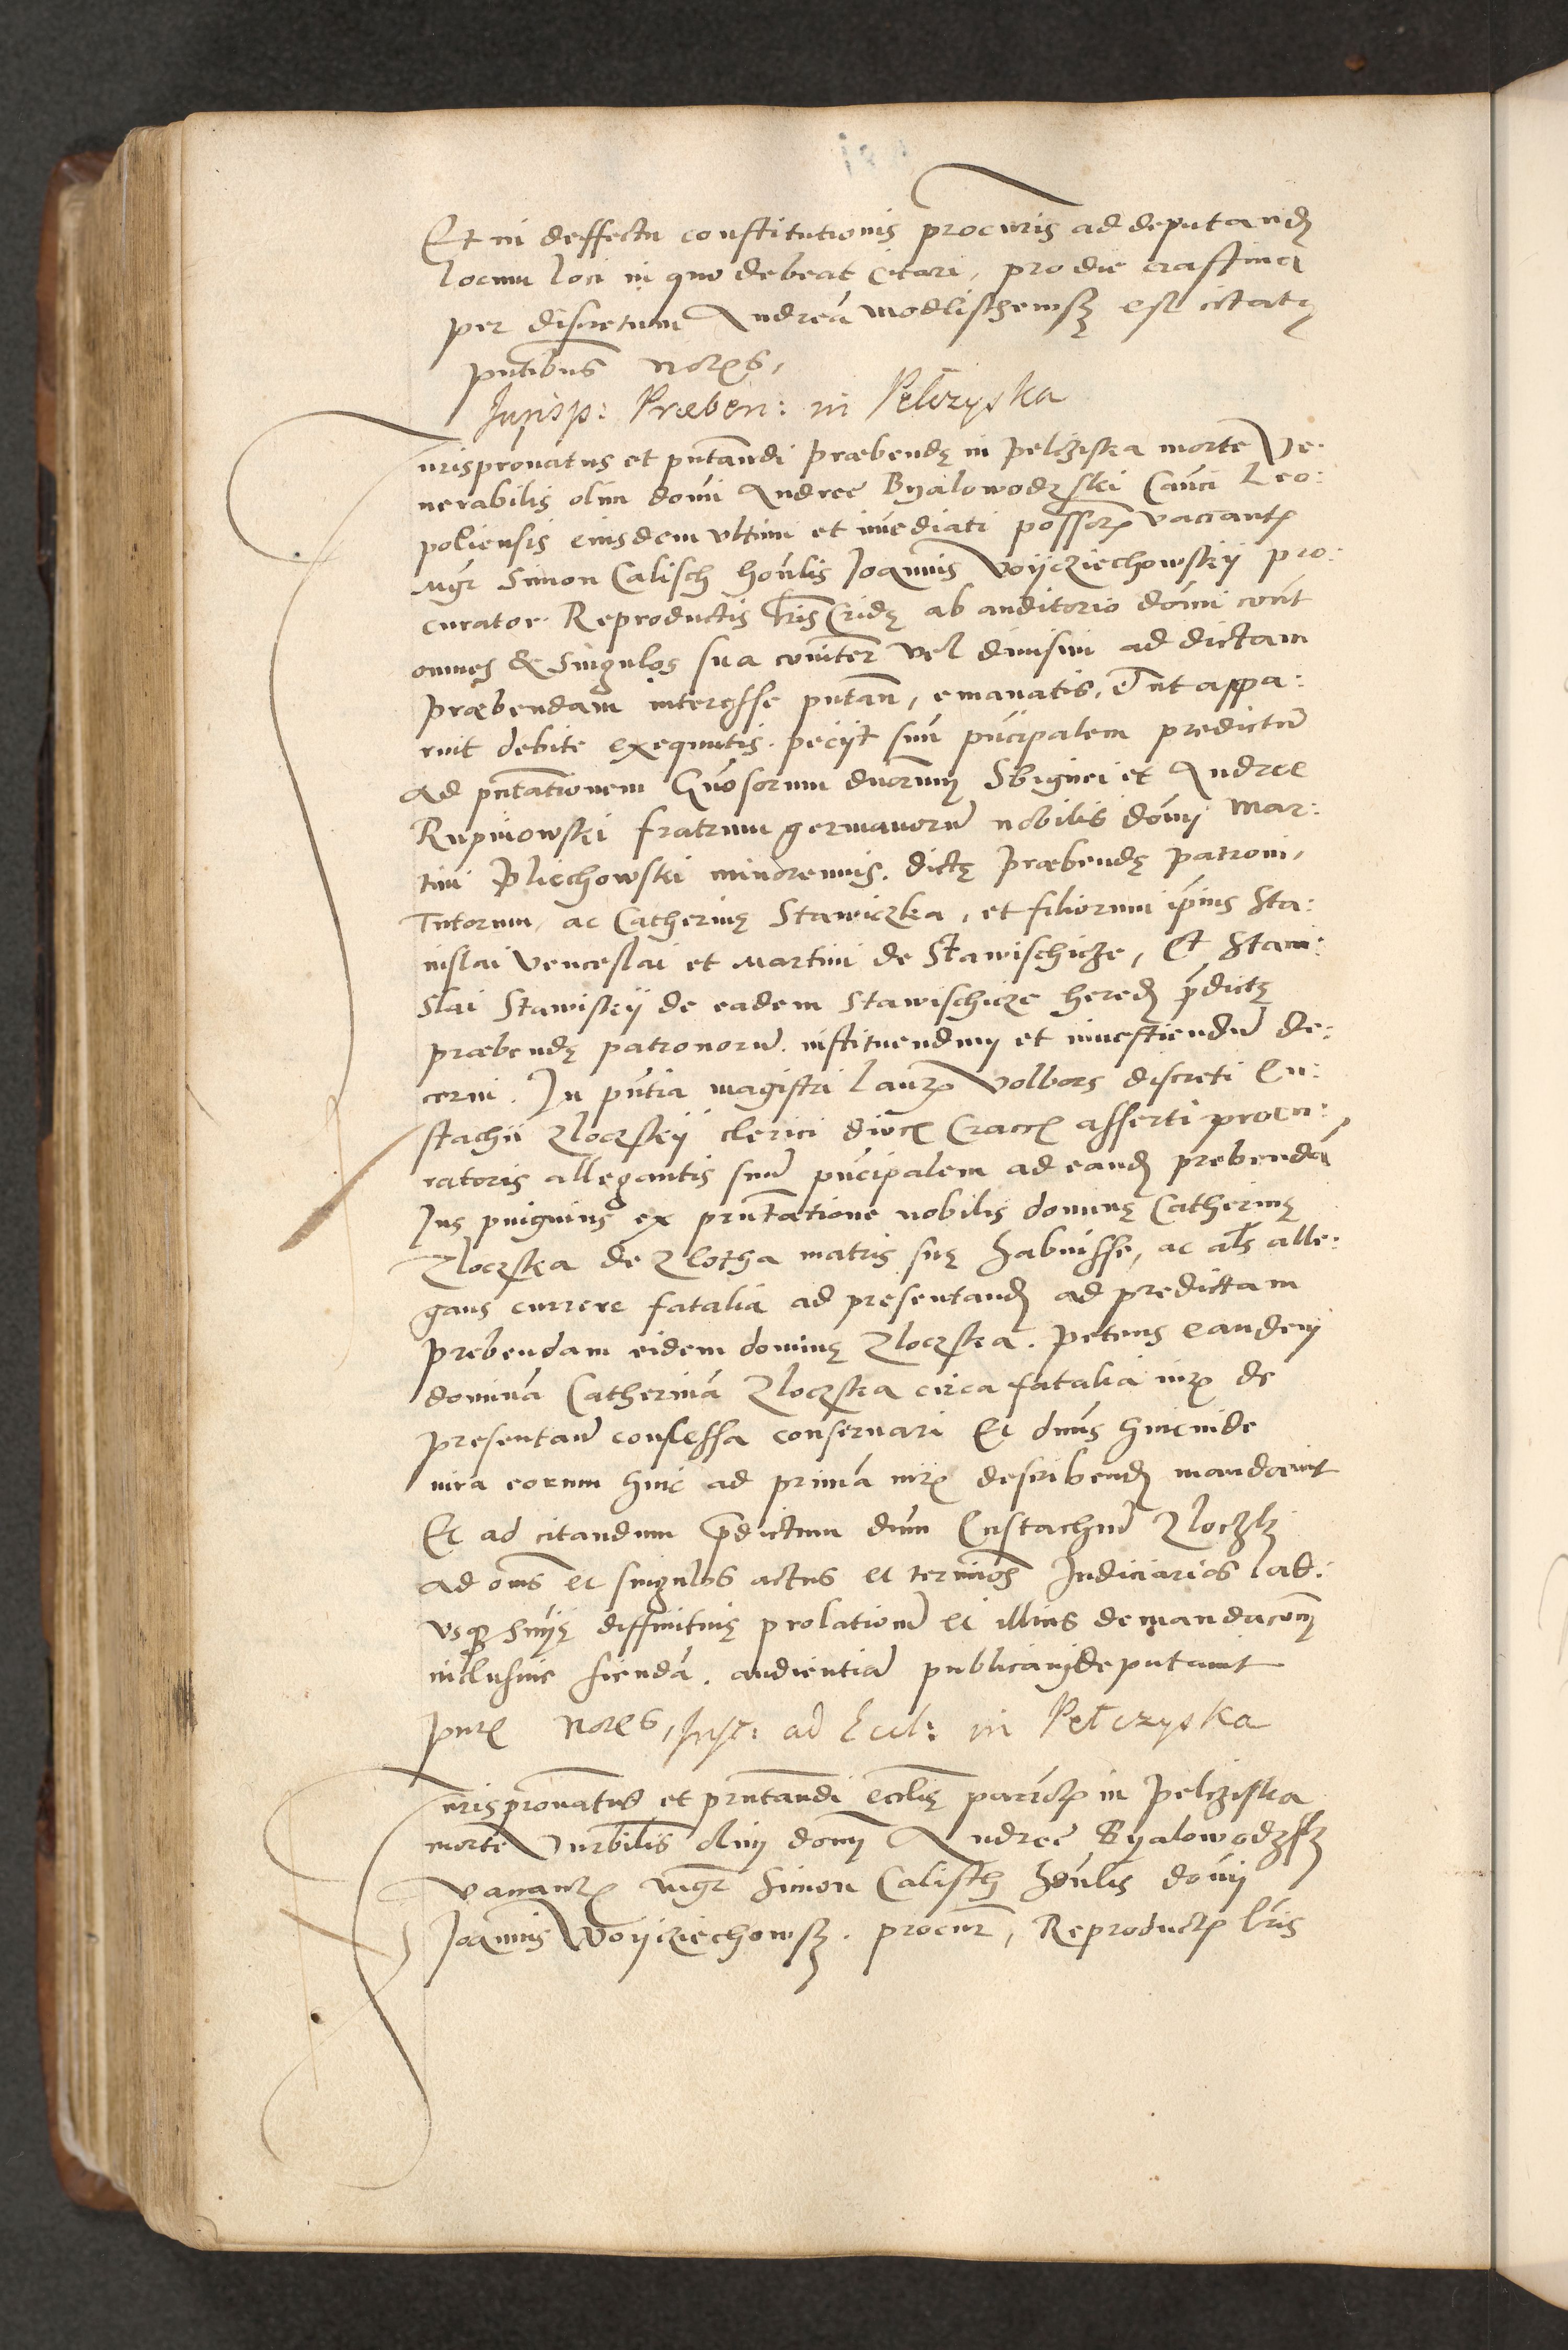 Et in deffectu constitutionis procuris ad deputandṃ
locum loci in quo debeat citari, pro die crastina
per discretum Andreā Modlischewsky est citatus
pntibus notrs,
Jurisp: Præben: in Pełczyska
Jurisptronatus et pntandi præbendę in Pelcziska morte Ve-
nerabilis olim domi Andree Byalowodzski Canci Leo:
poliensis eiusdem ultimi et imediati possors vacantis
Mgr Simon Calisch honlis Joannis Woyciechowskij pro:
curator. Reproductis lris Cridę ab auditorio domi contra
omnes & singulos sua coniter vel divisim ad dictam
præbendam interesse putan, emanatis, et ut appa:
ruit debite exequutis. peciit suū pncipalem predictū
ad pntationem Gnosorum duorum Sbignei et Andree
Rupniowski fratrum germanorū nobilis domi Mar:
tini Plechowski minorennis. dictę præbendę patroni,
Tutorum, ac Catherinę Stawiczka, et filiorum ipius Sta:
nislai Venceslai et Martini de Stawischicze, Et Stani:
slai Stawiskij de eadem Stawischicze heredṃ p̄dictę
præbendę patronorū. instituendum et inuestiendū de:
cerni. In pntia magistri Laurs Volbors discreti Eu:
stachii Zloczskij clerici diocs Craccs asserti procu:
ratoris allegantis suū pncipalem ad eandṃ prebendā
Jus pinguius ex prntatione nobilis dominę Catherinę
Zloczska de Zlotha matris suę habuisse, ac als alle:
gans currere fatalia ad presentandṃ ad predictam
prebendam eidem dominę Zloczska. petens eandem
dominā Catherinā Zloczska circa fatalia iurs de
presentan confessa conseruari Et dnus hincinde
iura eorum hinc ad primā iurs describendṃ mandauit
Et ad citandum p̄dictum dnm Eustachiū Zloczky
ad oms et singulos actus et terminos Judiciarios lad:
usque snię diffinitiuę prolationē et illius demandacom
inclusiue fiendā. audientiā publicam deputauit
pntes notrs, Jusp: ad Eccl: in Pełczyska
Jurisptronatus et prntandi ecclię parrols in Pelcziska
morte Vnrbilis olim domi Andree Byalowodzsky
vacantis Mgr Simon Calisch honlis domi
Joannis Woyciechowsky. procur, Reproductis lris